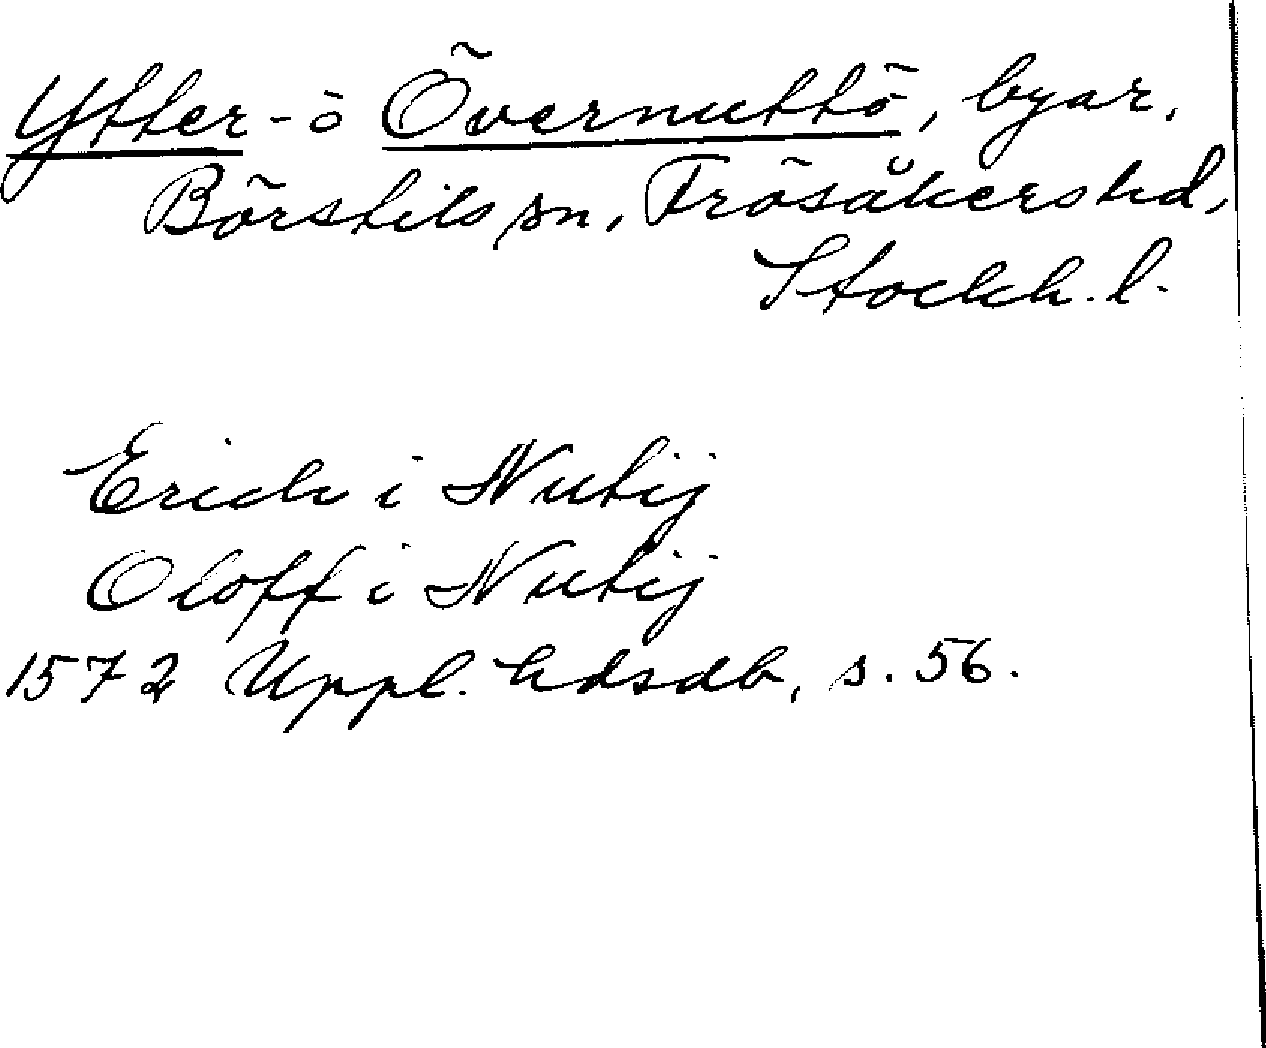 Ytter- o Övernuttö, byar.
Börstils sn, Frösåkers hd,
Stockh. l.
Erich i Nutij
Oloff i Nutij
1572 Uppl. hdsdb, s. 56.